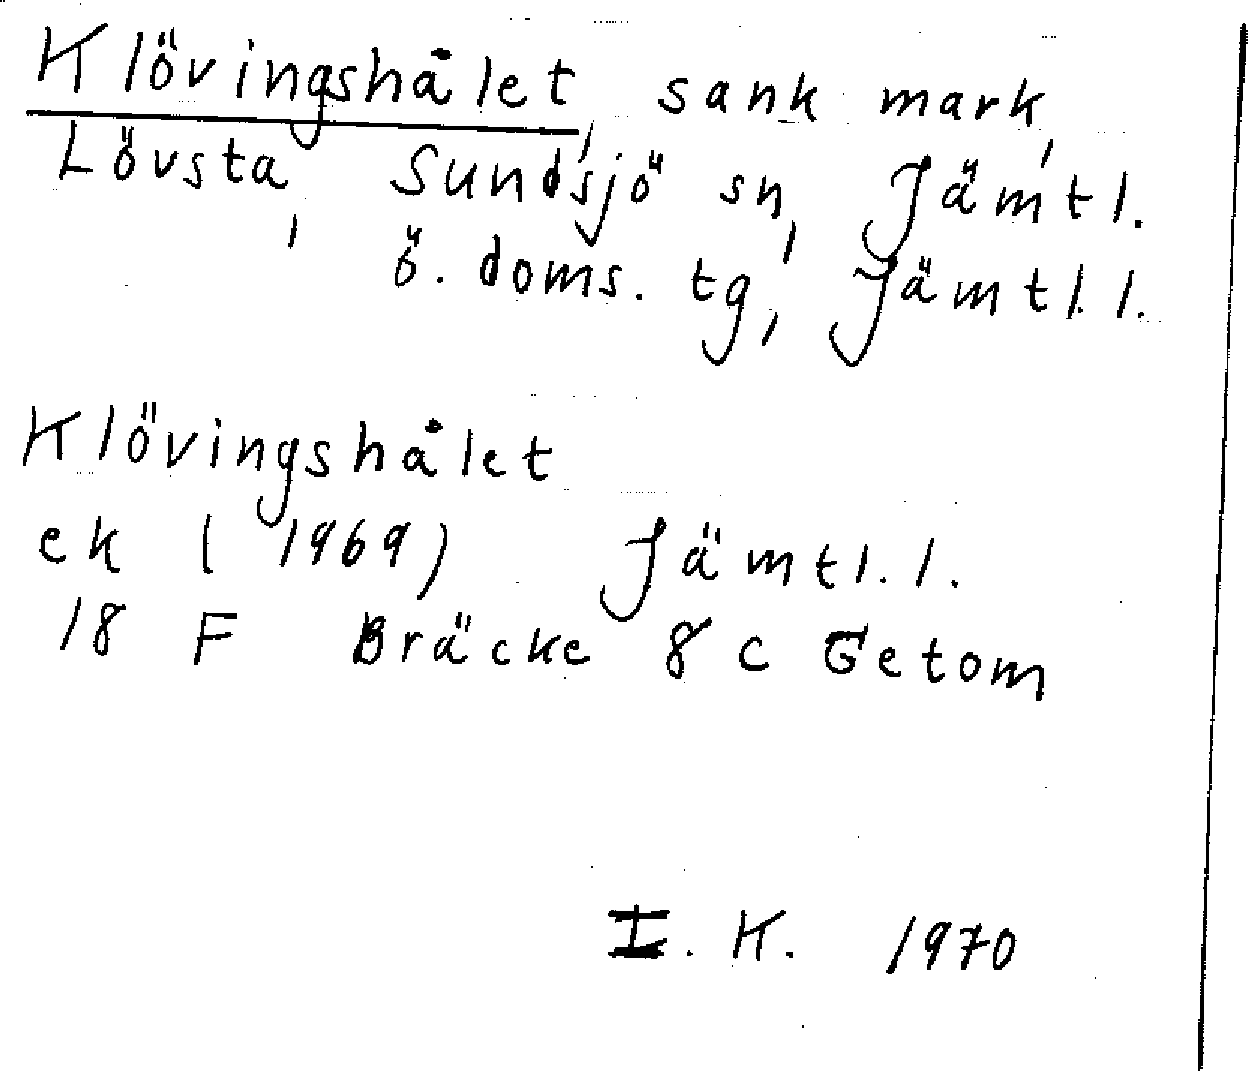 Klövingshålet, sank mark,
Lövsta, Sundsjö sn, Jämtl.
ö. doms. tg, Jämtl. l.
Klövingshålet
ek (1969) Jämtl. l.
18 F Bräcke 8 c Getom
I. K. 1970